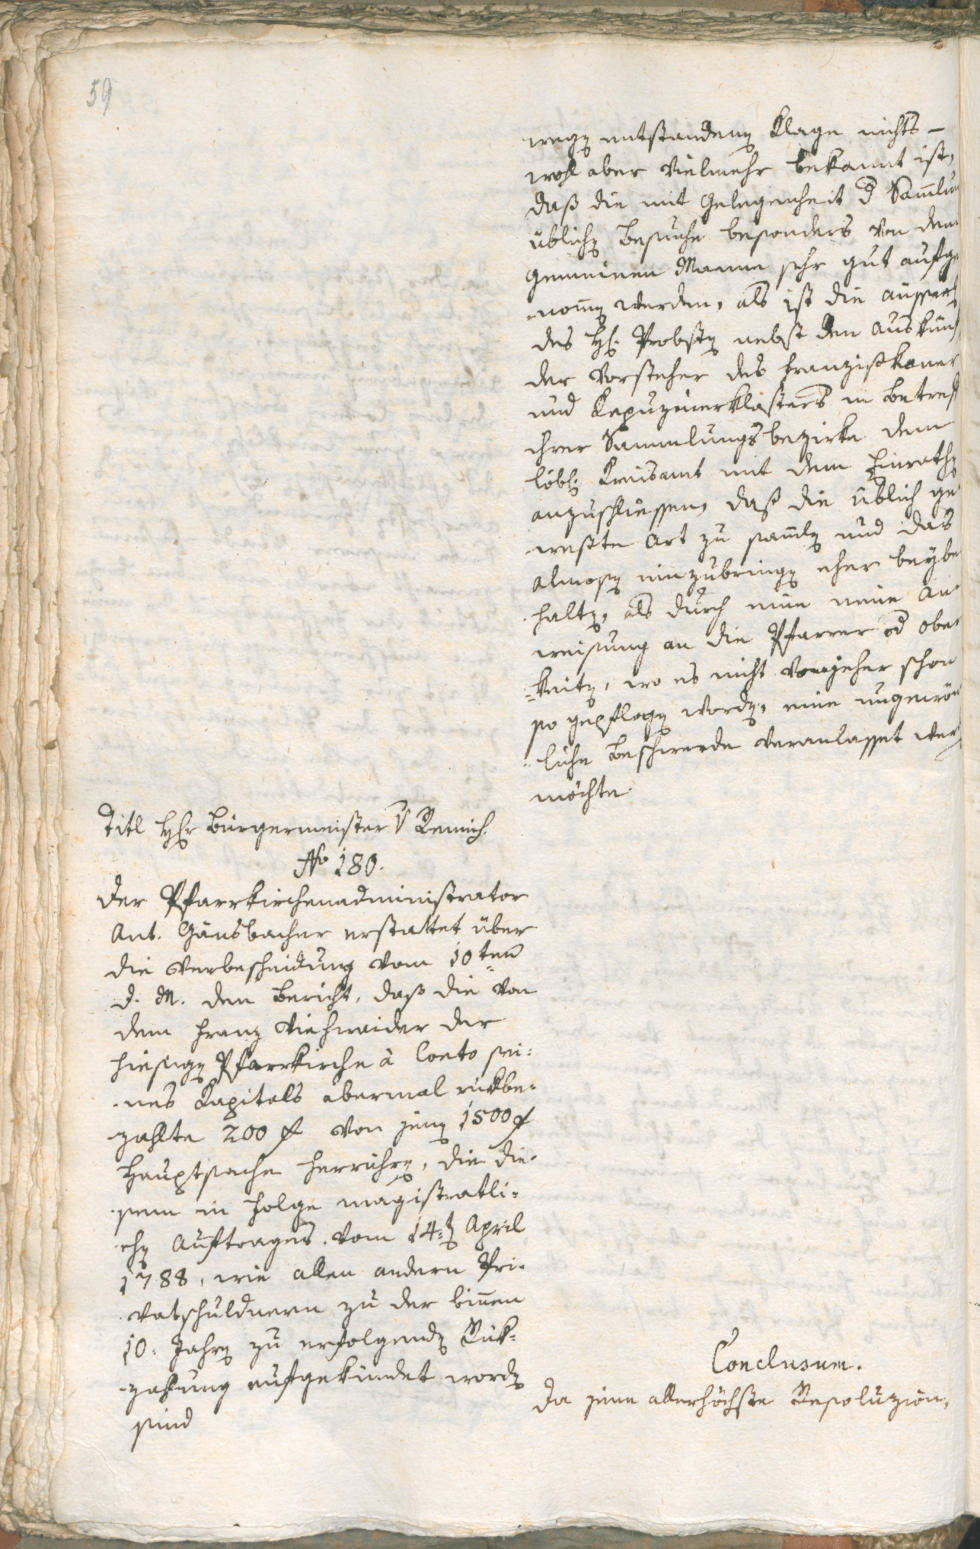 59
wegen entstandenen Klage nichts –
wohl aber vielmehr bekannt ist,
daß die mit Gelegenheit d Sam̅lun
üblichen Besuche besonders von dem
gemeinen Manne sehr gut aufge
nom̅en werden, als ist die
des H. Probsten nebst den Auskünf
der Vorsteher des Franziskaner
und Kapuzinerklosters in Betref
ihrer Sammlungsbezirke dem
löbl. Kreisamt mit dem Einrathen
anzuschliessen, daß die üblich ge
weßte Art zu sam̅len und das
Almosen einzubringen eher beybe
halten, als durch eine neue An
weisung an die Pfarrer od Obrig
keiten, wo es nicht vonjeher schon
so gepflogen worden, eine ungewön
liche Beschwerde veranlasset wer
möchte.
Titl Hr Bürgermeister v Remich.
No 180.
Der Pfarrkirchenadministrator
Ant. Gänsbacher erstattet über
die Verbescheidung vom 10ten
d. M. den Bericht, daß die von
dem Franz Viehweider der
hiesigen Pfarrkirche à Conto sei=
nes Kapitals abermal rükbe=
zahlte 200 f von jenen 1500 f
Hauptsache herrühren, die die=
sem in Folge magistratli=
chen Auftrages vom 14ten April
1788, wie allen andern Pri=
vatschuldnern zu der bin̅en
10. Jahren zu erfolgenden Rük=
zahlung aufgekündet worden
sind
Conclusum.
Da jene allerhöchste Resoluzion,